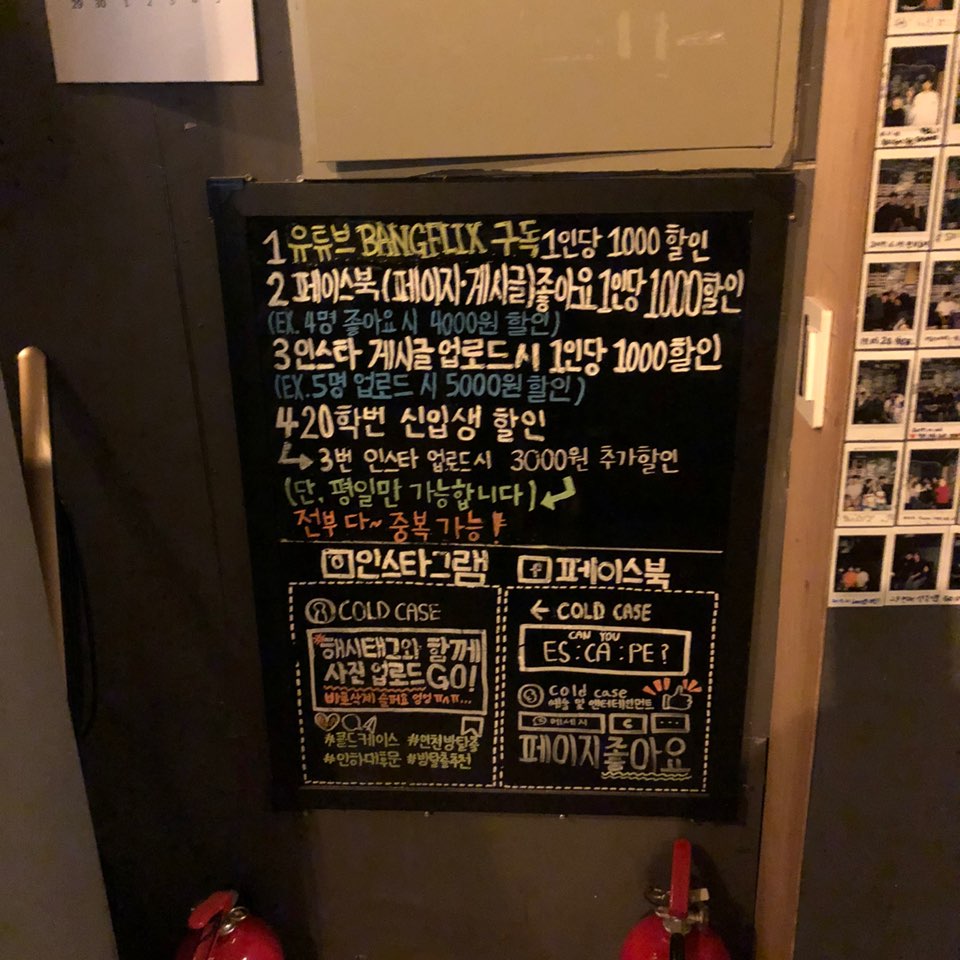 29 30 1 2 3 4 5
1 유튜브 BANGFLIX 구독 1인당 1000 할인
2 페이스북 (페이지·게시글) 좋아요 1인당 1000할인
(EX. 4명 좋아요 시 4000원 할인)
3 인스타 게시글 업로드 시 1인당 1000할인
(EX. 5명 업로드 시 5000원 할인)
4 20학번 신입생 할인
↳ 3번 인스타 업로드시 3000원 추가할인
(단, 평일만 가능합니다)
전부 다~ 중복 가능!
인스타그램
COLD CASE
*해시태그와 함께
사진 업로드 GO!
바로삭제 슬퍼요 엉엉 ㅠㅠ...
#콜드케이스 #인천방탈출
#인하대후문 #방탈출추천
f 페이스북
← COLD CASE
CAN YOU
ES:CA:PE?
Cold case
예술 및 엔터테인먼트
메세지
페이지좋아요